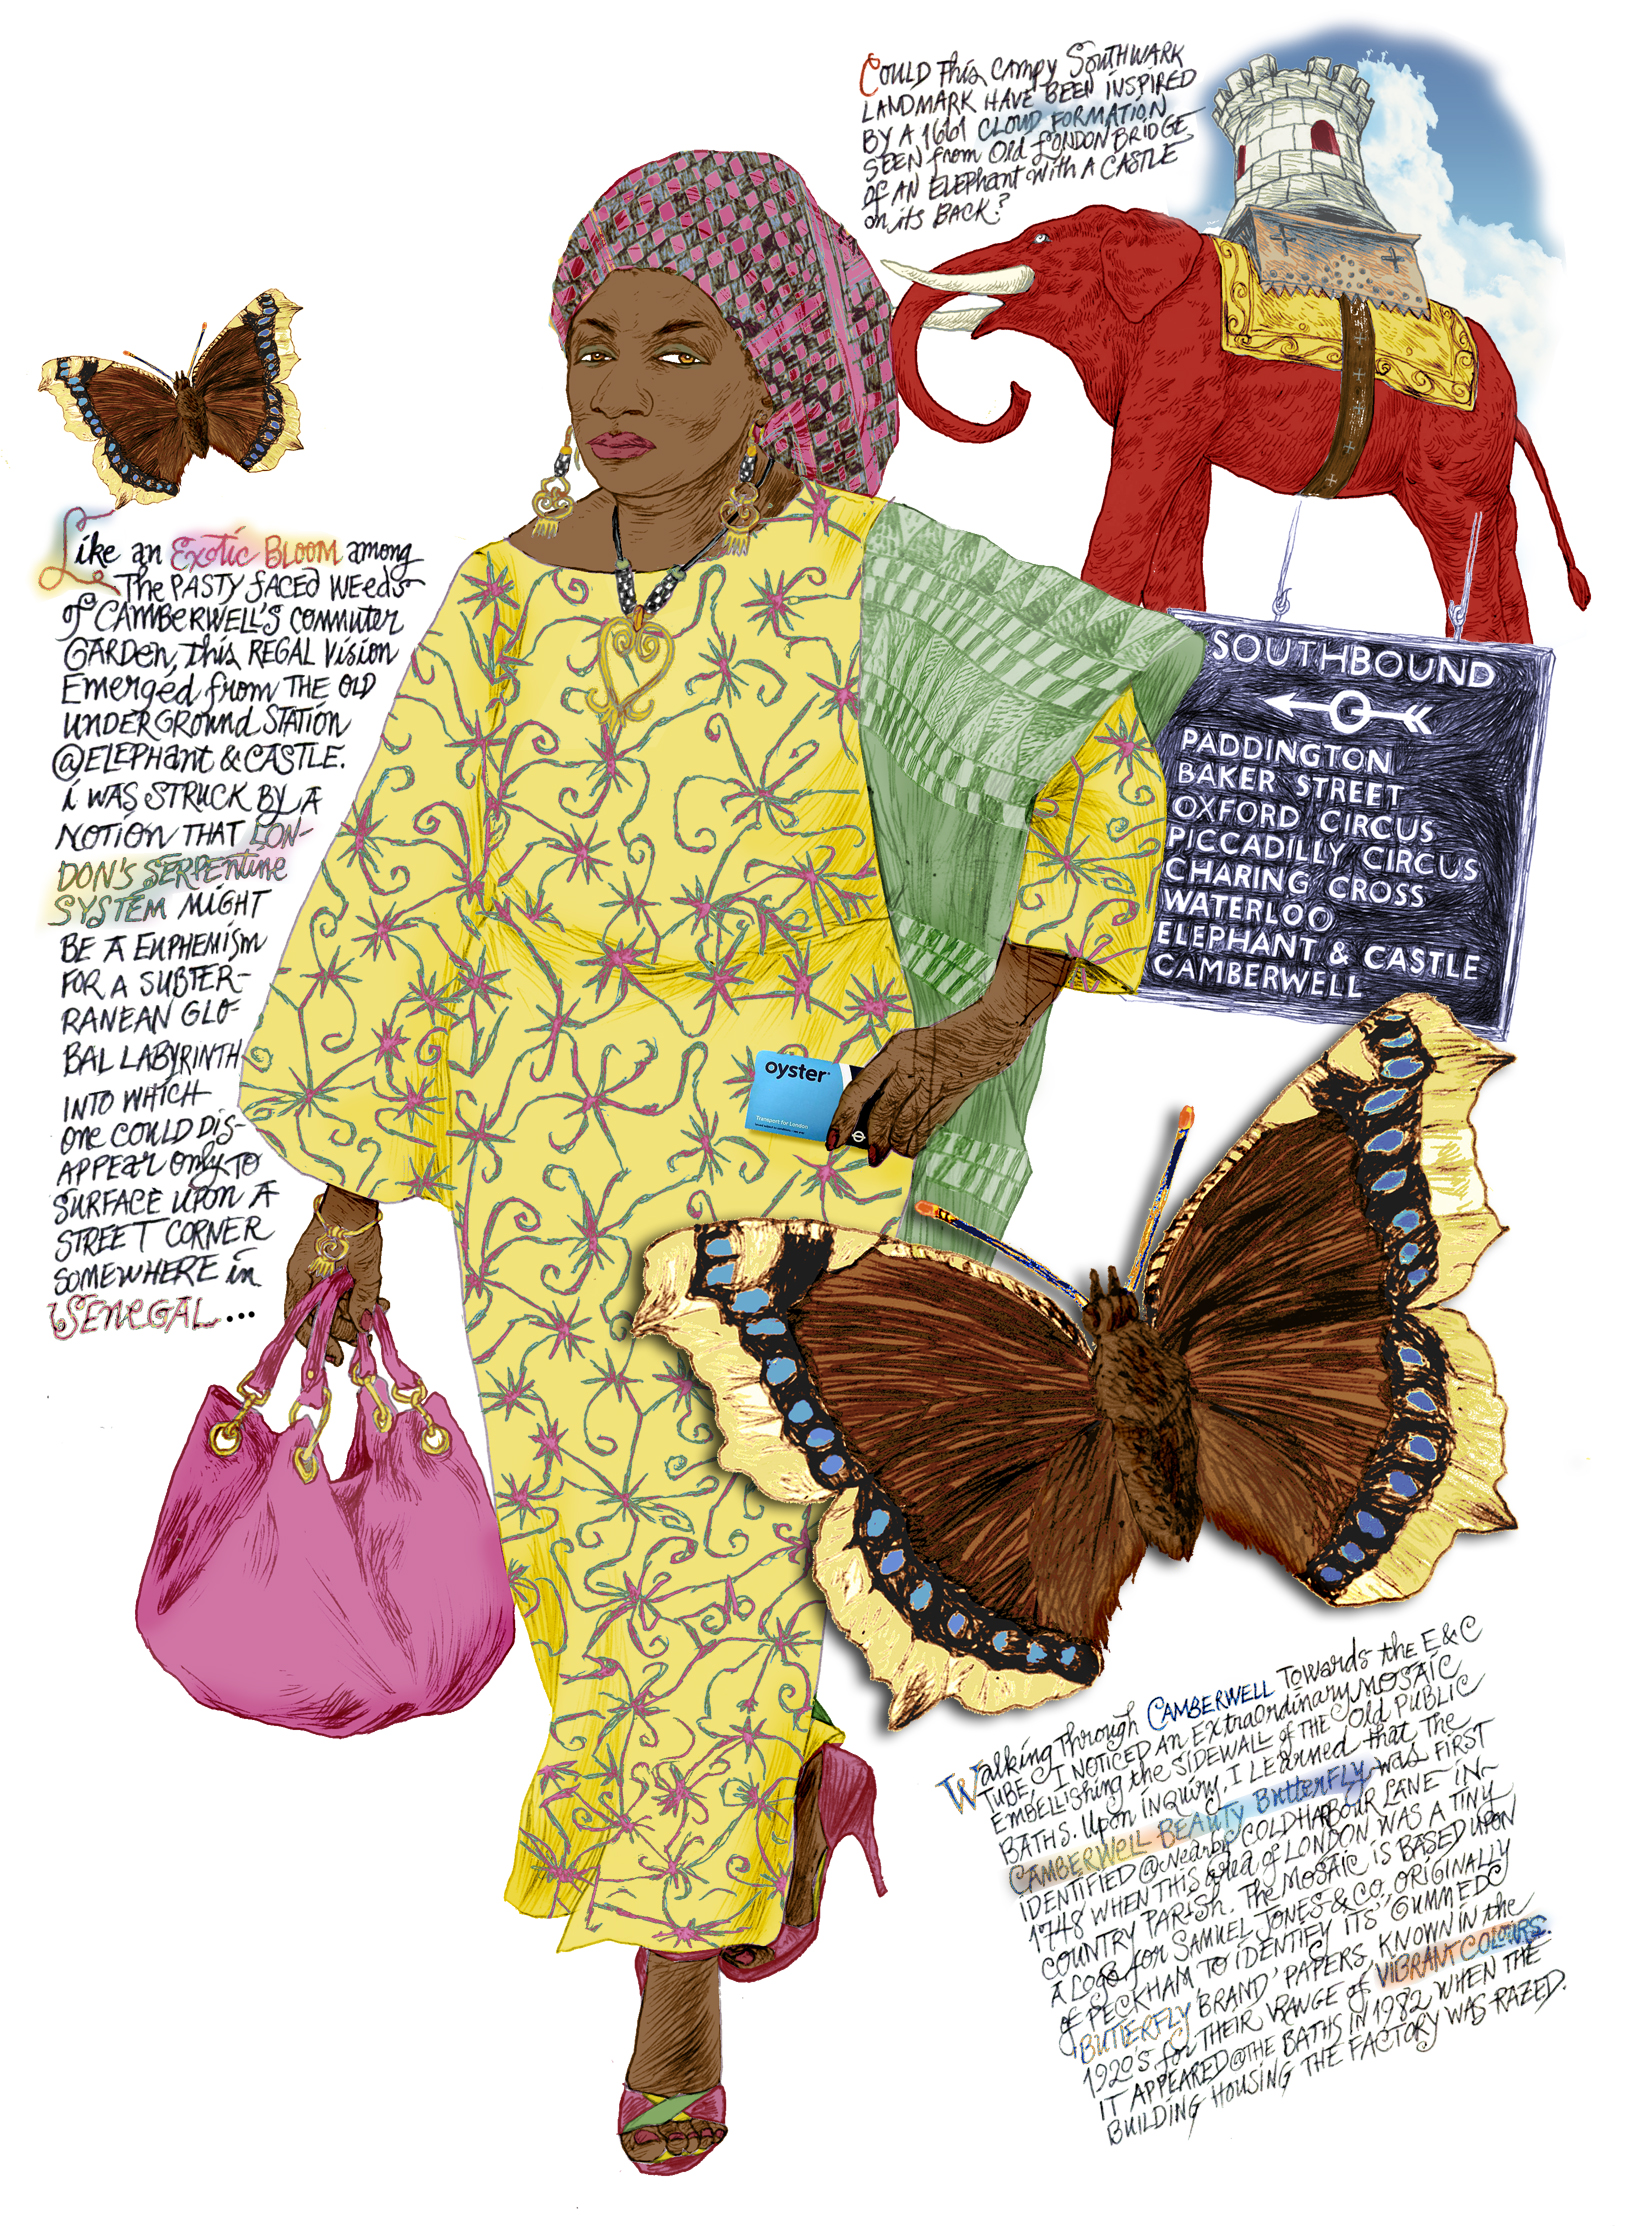 Could this campy Southwark
landmark have been inspired
by a 1661 cloud formation
seen from Old London Bridge
of an elephant with a castle
on its back?
Like an Exotic Bloom among
the pasty faced weeds
of Camberwell's commuter
garden, this regal vision
emerged from the old
underground station
@Elephant & Castle.
I was struck by a
notion that Lon-
don's serpentine
system might
be a euphemism
for a subter-
ranean glo-
bal labyrinth
into which
one could dis-
appear only to
surface upon a
street corner
somewhere in
Senegal...
SOUTHBOUND
PADDINGTON
BAKER STREET
OXFORD CIRCUS
PICCADILLY CIRCUS
CHARING CROSS
WATERLOO
ELEPHANT & CASTLE
CAMBERWELL
oyster
Transport for London
Walking through Camberwell towards the E&C
tube, I noticed an extraordinary mosaic
embellishing the sidewall of the old public
baths. Upon inquiry, I learned that the
Camberwell Beauty Butterfly was first
identified @nearby Coldharbour Lane in
1748 when this area of London was a tiny
country parish. The mosaic is based upon
a logo for Samuel Jones & Co., originally
of Peckham, to identify its 'gummed
Butterfly Brand' papers, known in the
1920's for their range of vibrant colours.
It appeared @the baths in 1982 when the
building housing the factory was razed.